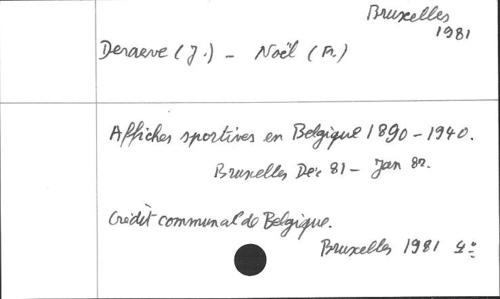 Bruxelles
1981
Deraeve (J.) - Noël (Fr.)
Affiches sportives en Belgique 1890-1940.
Bruxelles Déc 81 - Jan 82.
Crédit communal de Belgique.
Bruxelles 1981 4°